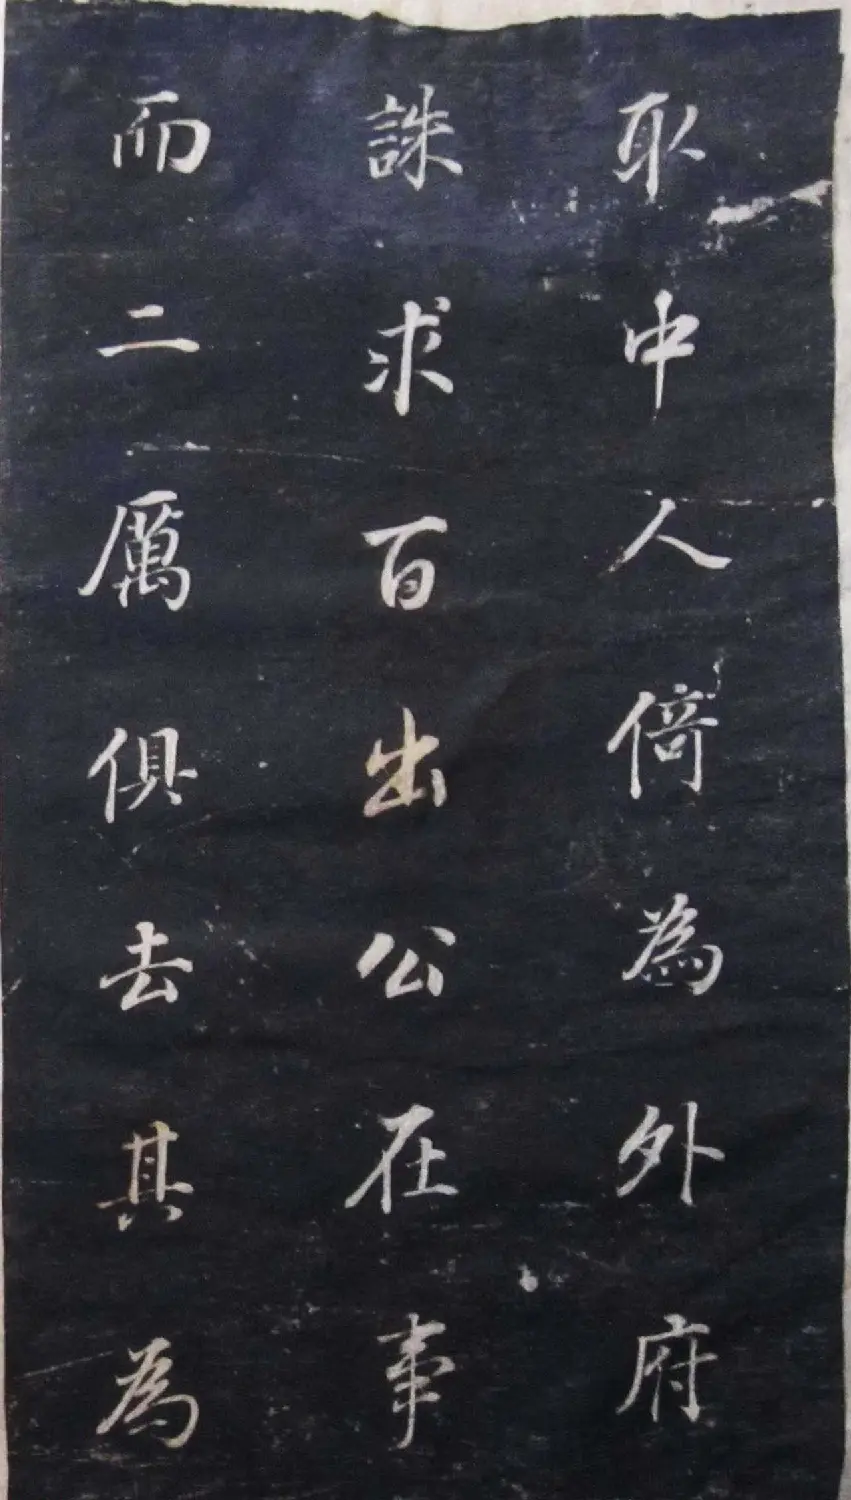 取中人倚為外府
誅求百出公在事
而二厲俱去其為